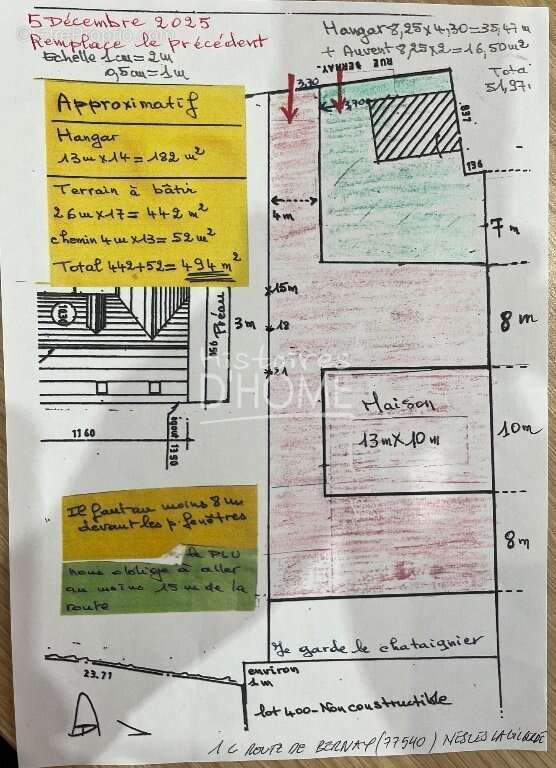 5 Décembre 2025
Remplace le précédent
Echelle 1cm = 2m
0,5cm = 1m
Hangar 8,25 x 4,30 = 35,47 m
+ Auvent 8,25 x 2 = 16,50 m²
Total
51,97
RUE BERNAY
3,70
3,70
837
136
Approximatif
Hangar
13m x 14 = 182 m²
Terrain à bâtir
26m x 17 = 442 m²
chemin 4m x 13 = 52 m²
Total 442 + 52 = 494 m²
4m
7m
15m
3m
18
21
8m
956
1160
égout 1350
Histoires
D'HOME
Maison
13m X 10m
10m
Il faut au moins 8m
devant les p. fenêtres
le PLU
nous oblige à aller
au moins 15m de la
route
8m
Je garde le chataignier
23.71
environ
1m
lot 400 - Non constructible
ROUTE DE BERNAY (77540)